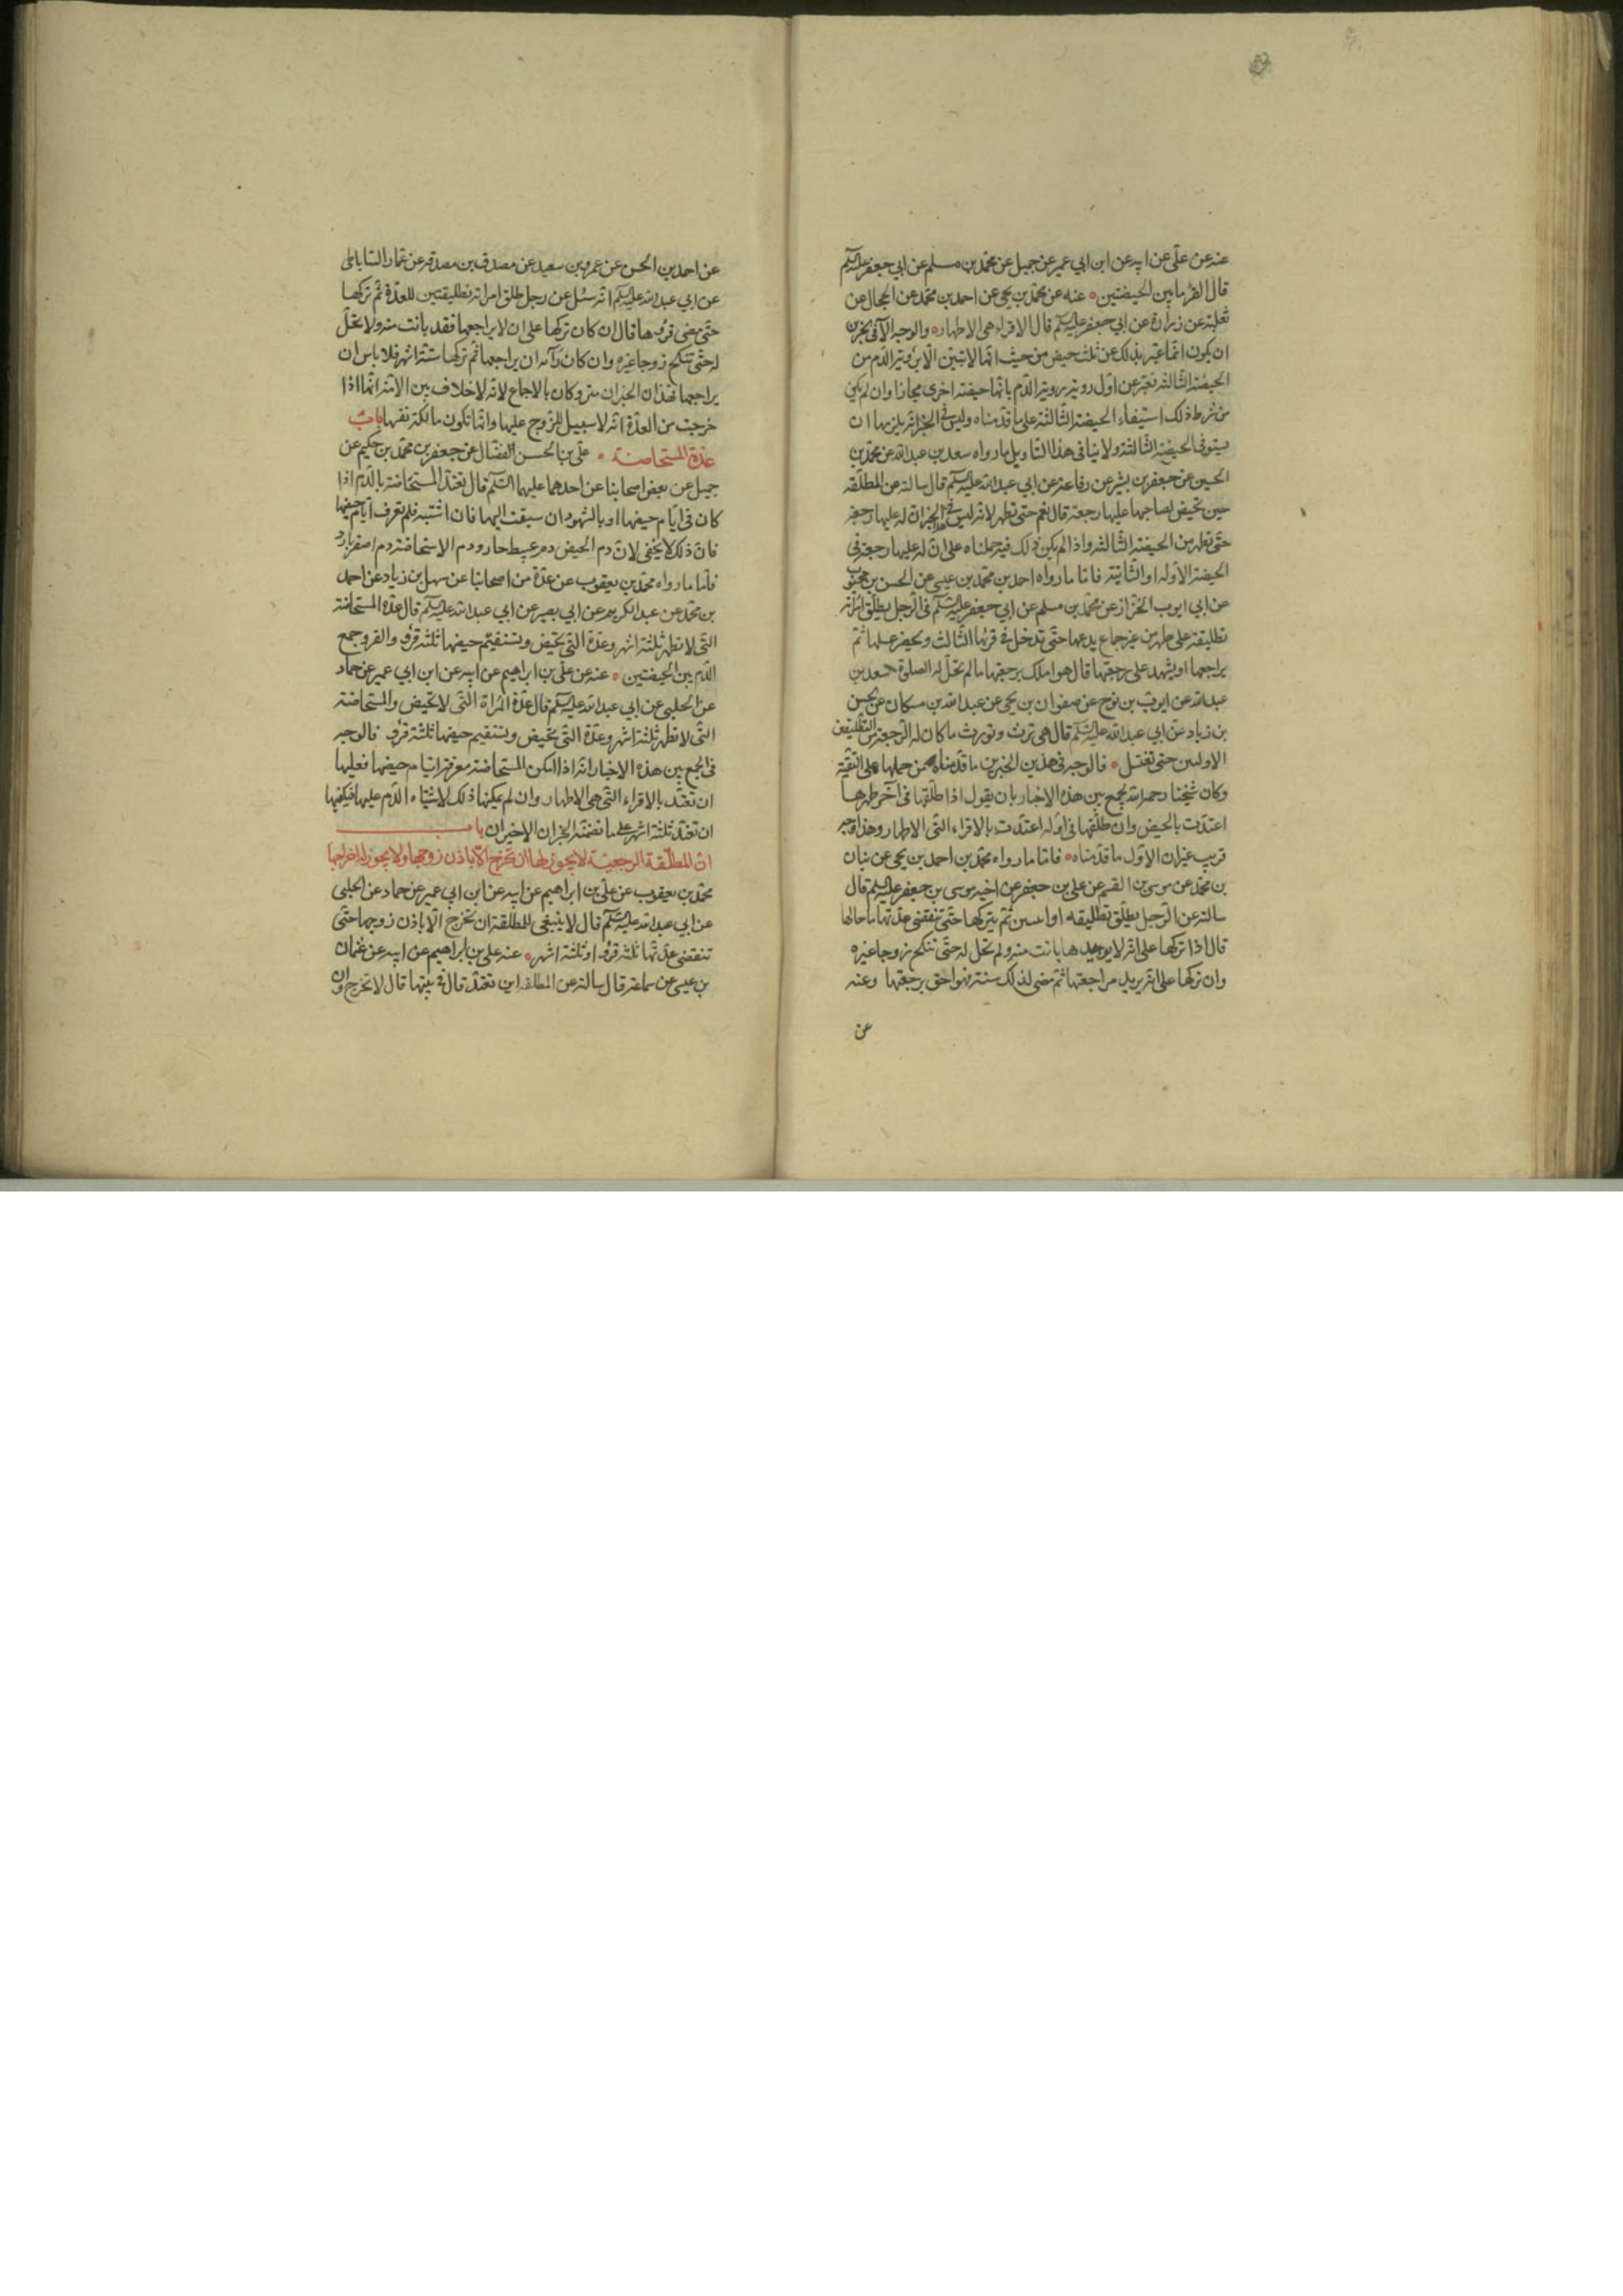 عنه عن علي عن ابيه عن ابن ابي عمير عن جميل عن محمد بن مسلم عن ابي جعفر عليه السلم
قال القرء ما بين الحيضتين ٥ عنه عن محمد بن يحيى عن احمد بن محمد عن الحجال عن
ثعلبة عن زرارة عن ابي جعفر عليه السلم قال الاقراء هي الاطهار ٥ والوجه الآخر
ان يكون انما عبر بذلك عن ثلث حيض من حيث انها لا تبين الا برؤية الدم من
الحيضة الثالثة فعبر عن اول رؤية الدم بانها حيضة اخرى مجازا وان لم يكن
من شرط ذلك استيفاء الحيضة الثالثة على ما قدمناه وليس في الخبر انه يلزمها ان
يستوفى الحيضة الثالثة ولا ينافى هذا التاويل ما رواه سعد بن عبد الله عن محمد بن
الحسين عن جعفر بن بشير عن رفاعة عن ابي عبد الله عليه السلم قال سالته عن المطلقة
حين تحيض لصاحبها عليها رجعة قال نعم حتى تطهر لانه ليس في هذا الخبر ان له عليها رجعة
حتى تطهر من الحيضة الثالثة واذا لم يكن ذلك فيه حملناه على ان له عليها رجعة في
الحيضة الاولة او الثانية فاما ما رواه احمد بن محمد بن عيسى عن الحسن بن محبوب
عن ابي ايوب الخزاز عن محمد بن مسلم عن ابي جعفر عليه السلم في الرجل يطلق امراته
تطليقة على طهر من غير جماع يدعها حتى تدخل في قرئها الثالث ويحضر غسلها ثم
يراجعها او يشهد على رجعتها قال هو املك برجعتها ما لم تحل له الصلوة سعد بن
عبد الله عن ايوب بن نوح عن صفوان بن يحيى عن عبد الله بن مسكان عن الحسن
بن زياد عن ابي عبد الله عليه السلم قال هي ترث وتورث ما كان له الرجعة من التطليقتين
الاولتين حتى تغتسل ٥ فالوجه في هذين الخبرين ما قدمناه من حملها على التقية
وكان شيخنا رحمه الله يجمع بين هذه الاخبار بان يقول اذا طلقها في آخر طهرها
اعتدت بالحيض وان طلقها في اوله اعتدت بالاقراء التي الاطهار وهذا وجه
قريب غير ان الاول ما قدمناه ٥ فاما ما رواه محمد بن احمد بن يحيى عن بنان
بن محمد عن موسى بن القسم عن علي بن جعفر عن اخيه موسى بن جعفر عليه السلم قال
سالته عن الرجل يطلق تطليقه او اثنتين ثم يتركها حتى تنقضى عدتها ما حالها
قال اذا تركها على انه لا يريدها بانت منه ولم تحل له حتى تنكح زوجا غيره
وان تركها على انه يريد مراجعتها ثم مضى لذلك سنة فهو احق برجعتها وعنه
عن
عن احمد بن الحسن عن عمرو بن سعيد عن مصدق بن صدقة عن عمار الساباطى
عن ابي عبد الله عليه السلم انه سئل عن رجل طلق امراته تطليقتين للعدة ثم تركها
حتى مضى قرؤها قال ان كان تركها على ان لا يراجعها فقد بانت منه ولا تحل
له حتى تنكح زوجا غيره وان كان رآيه ان يراجعها ثم تركها ستة اشهر فلا باس ان
يراجعها فهذان الخبران متروكان بالاجماع لانه لا خلاف بين الامة انها اذا
خرجت من العدة انه لا سبيل للزوج عليها وانما تكون مالكة نفسها باب
عدة المستحاضة ٥ علي بن الحسن الفضال عن جعفر بن محمد بن حكيم عن
جميل عن بعض اصحابنا عن احدهما عليهما السلم قال تعتد المستحاضة بالدم اذا
كان في ايام حيضها او بالشهور ان سبقت اليها فان اشتبه فلم تعرف ايام حيضها
فان ذلك لا يخفى لان دم الحيض دم عبيط حار ودم الاستحاضة دم اصفر بارد
فاما ما رواه محمد بن يعقوب عن عدة من اصحابنا عن سهل بن زياد عن احمد
بن محمد عن عبد الكريم عن ابي بصير عن ابي عبد الله عليه السلم قال عدة المستحاضة
التي لا تطهر ثلثة اشهر وعدة التي تحيض وتستقيم حيضها ثلثة قروء والقرو جمع
الدم بين الحيضتين ٥ عنه عن علي بن ابراهيم عن ابيه عن ابن ابي عمير عن حماد
عن الحلبي عن ابي عبد الله عليه السلم قال عدة المراة التي لا تحيض والمستحاضة
التي لا تطهر ثلثة اشهر وعدة التي تحيض ويستقيم حيضها ثلثة قروء فالوجه
في الجمع بين هذه الاخبار انه اذا امكن المستحاضة معرفة ايام حيضها فعليها
ان تعتد بالاقراء التي هي الاطهار وان لم يمكنها ذلك لاشتباه الدم عليها فيكفيها
ان تعتد ثلثة اشهر على ما تضمنه الخبران الاخيران باب
ان المطلقة الرجعية لا يجوز لها ان تخرج الا باذن زوجها ولا يجوز له اخراجها
محمد بن يعقوب عن علي بن ابراهيم عن ابيه عن ابن ابي عمير عن حماد عن الحلبي
عن ابي عبد الله عليه السلم قال لا ينبغي للمطلقة ان تخرج الا باذن زوجها حتى
تنقضى عدتها ثلثة قروء او ثلثة اشهر ٥ عنه علي بن ابراهيم عن ابيه عن عثمان
بن عيسى عن سماعة قال سالته عن المطلقه اين تعتد قال في بيتها قال لا تخرج وان